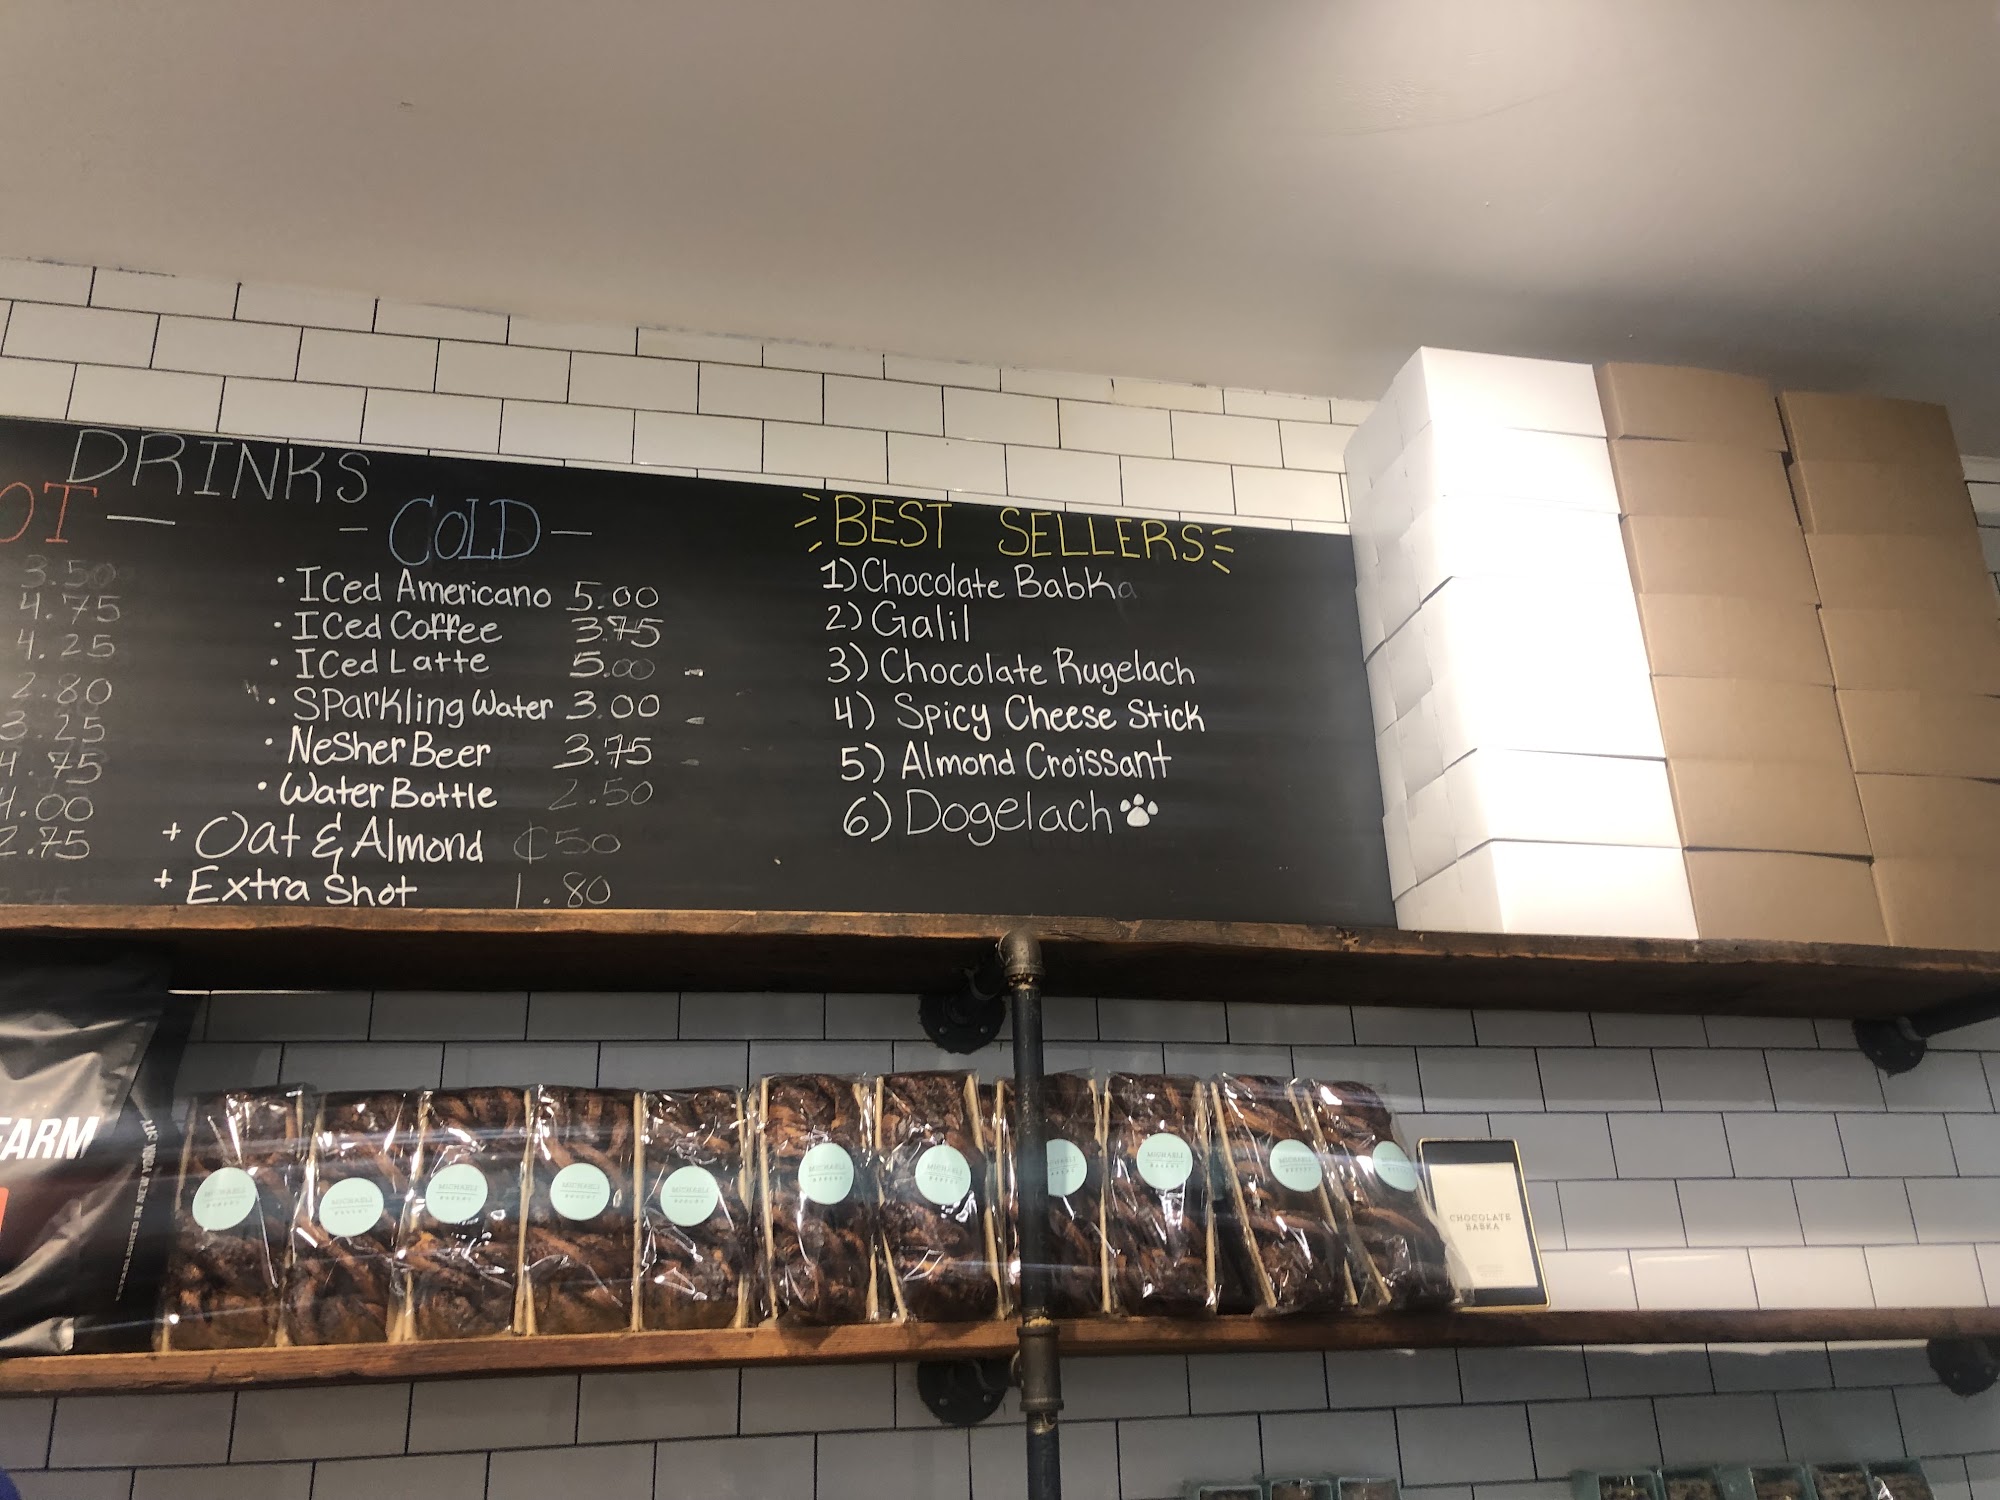 DRINKS
OT —
3.50
4.75
4.25
2.80
3.25
4.75
4.00
2.75
- COLD -
· Iced Americano 5.00
· Iced Coffee 3.75
· Iced Latte 5.00
· Sparkling Water 3.00
· Nesher Beer 3.75
· Water Bottle 2.50
+ Oat & Almond ¢50
+ Extra Shot 1.80
BEST SELLERS
1) Chocolate Babka
2) Galil
3) Chocolate Rugelach
4) Spicy Cheese Stick
5) Almond Croissant
6) Dogelach
FARM
MICHAELI
BAKERY
MICHAELI
BAKERY
MICHAELI
BAKERY
MICHAELI
BAKERY
MICHAELI
BAKERY
MICHAELI
BAKERY
MICHAELI
BAKERY
MICHAELI
BAKERY
MICHAELI
BAKERY
CHOCOLATE
BABKA